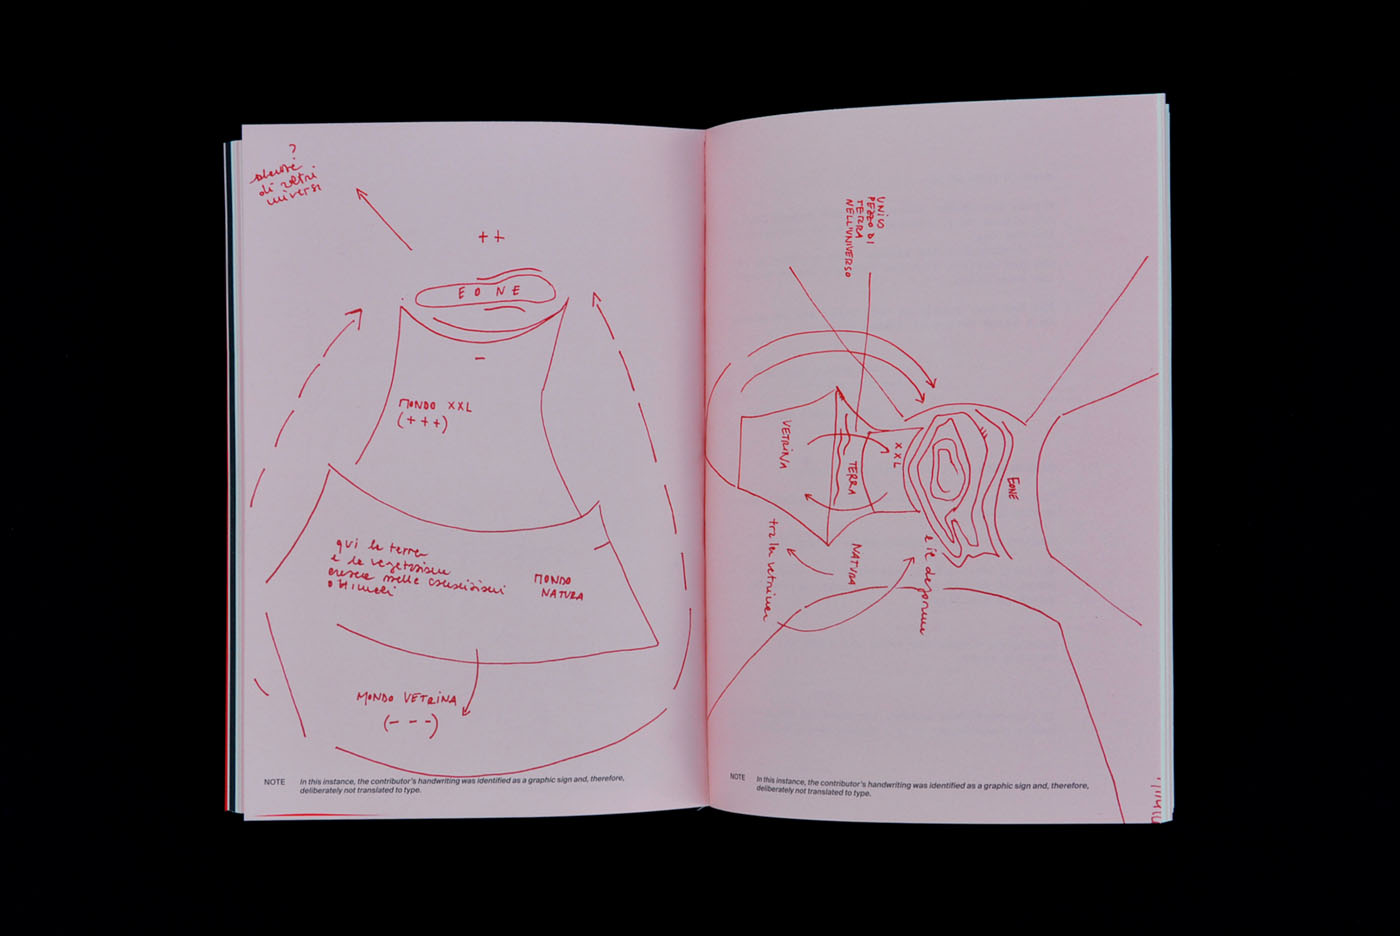 ?
di vetri
universi
++
EONE
-
MONDO XXL
(+++)
qui la terra
e la vegetazione
cresce nelle condizioni
ottimali
MONDO
NATURA
MONDO VETRINA
(---)
NOTE In this instance, the contributor's handwriting was identified as a graphic sign and, therefore,
deliberately not translated to type.
PEZZO DI
TERRA
NELL'UNIVERSO
VETRINA
TERRA
XXL
EONE
NATURA
tra la vetrina
NOTE In this instance, the contributor's handwriting was identified as a graphic sign and, therefore,
deliberately not translated to type.